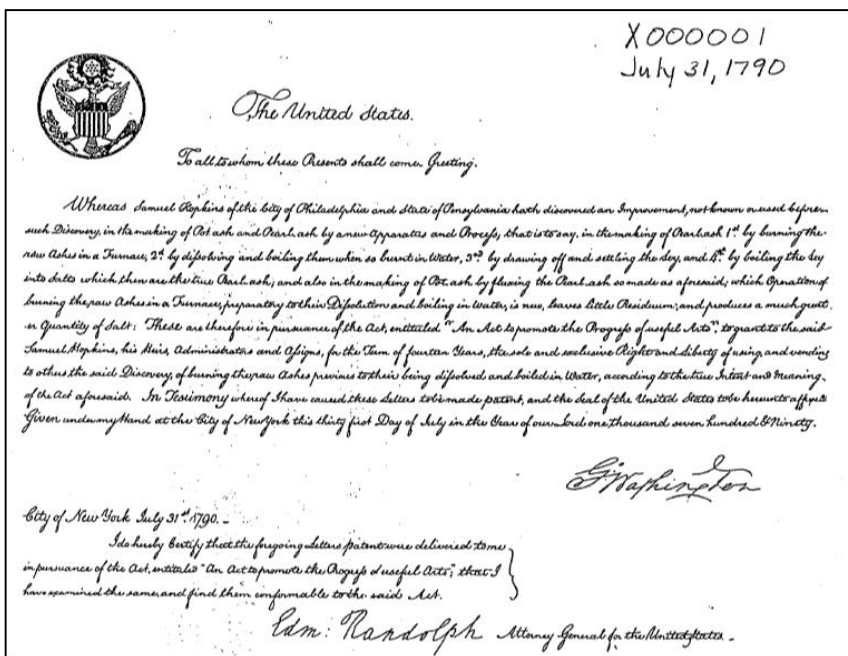 X000001
July 31, 1790
The United States.
To all to whom these Presents shall come, Greeting.
Whereas Samuel Hopkins of the City of Philadelphia and State of Pensylvania hath discovered an Improvement, not known or used before
such Discovery, in the making of Pot ash and Pearl ash by a new Apparatus and Process; that is to say, in the making of Pearl ash 1st by burning the
raw Ashes in a Furnace, 2d by dissolving and boiling them when so burnt in Water, 3rd by drawing off and settling the Ley, and 4th by boiling the Ley
into Salts which then are the true Pearl ash; and also in the making of Pot ash by fluxing the Pearl ash so made as aforesaid; which Operation of
burning the raw Ashes in a Furnace, preparatory to their Dissolution and boiling in Water, is new, leaves little Residuum; and produces a much great
er Quantity of Salt: These are therefore in pursuance of the Act, entituled "An Act to promote the Progress of useful Arts", to grant to the said
Samuel Hopkins, his Heirs, Administrators and Assigns, for the Term of fourteen Years, the sole and exclusive Right and Liberty of using, and vending
to others the said Discovery, of burning the raw Ashes previous to their being dissolved and boiled in Water, according to the true Intent and Meaning
of the Act aforesaid. In Testimony whereof I have caused these Letters to be made patent, and the Seal of the United States to be hereunto affixed
Given under my Hand at the City of New York this thirty first Day of July in the Year of our Lord one thousand seven hundred & Ninety.
G. Washington
City of New York July 31st. 1790. -
I do hereby Certify that the foregoing Letters patent were delivered to me
in pursuance of the Act, entituled "An Act to promote the Progress of useful Arts"; that I
have examined the same, and find them conformable to the said Act.
Edm: Randolph Attorney General for the United States. -